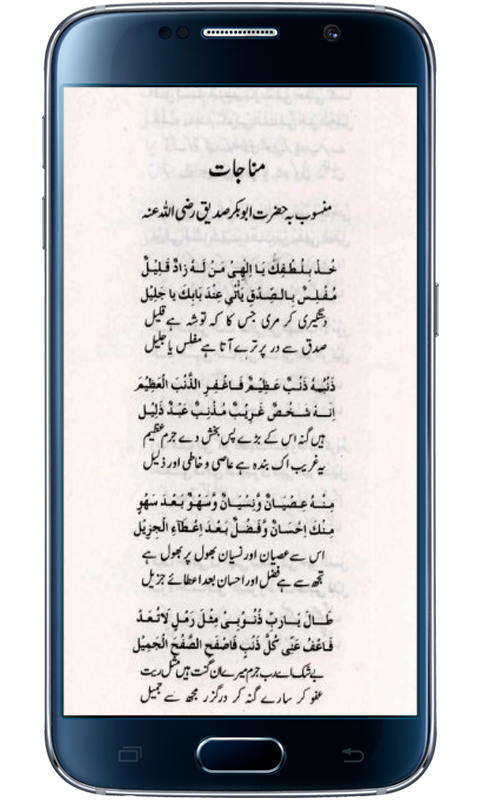 مناجات
منسوب بہ حضرت ابوبکر صدیق رضی اللہ عنہ
خُذْ بِلُطْفِكَ يَا اِلٰهِىْ مَنْ لَهٗ زَادٌ قَلِيْلٌ
مُفْلِسٌ بِالصِّدْقِ يَأْتِىْ عِنْدَ بَابِكَ يَا جَلِيْل
دستگیری کر مری جس کا کہ توشہ ہے قلیل
صدق سے در پر ترے آتا ہے مفلس یا جلیل
ذَنْبُهٗ ذَنْبٌ عَظِيْمٌ فَاغْفِرِ الذَّنْبَ الْعَظِيْمَ
اِنَّهٗ شَخْصٌ غَرِيْبٌ مُذْنِبٌ عَبْدٌ ذَلِيْل
ہیں گنہ اس کے بڑے پس بخش دے جرم عظیم
یہ غریب اک بندہ ہے عاصی و خاطی اور ذلیل
مِنْهُ عِصْيَانٌ وَّنِسْيَانٌ وَّسَهْوٌ بَعْدَ سَهْوٍ
مِنْكَ اِحْسَانٌ وَّفَضْلٌ بَعْدَ اِعْطَآءِ الْجَزِيْل
اس سے عصیان اور نسیان بھول پر بھول ہے
تجھ سے ہے فضل اور احسان بعد اعطائے جزیل
طَالَ يَارَبِّ ذُنُوْبِىْ مِثْلَ رَمْلٍ لَاتُعَدْ
فَاعْفُ عَنِّى كُلَّ ذَنْبٍ فَاصْفَحِ الصَّفْحَ الْجَمِيْل
بے شک اے رب جرم میرے ان گنت ہیں مثل ریت
عفو کر سارے گنہ کر درگزر مجھ سے جمیل